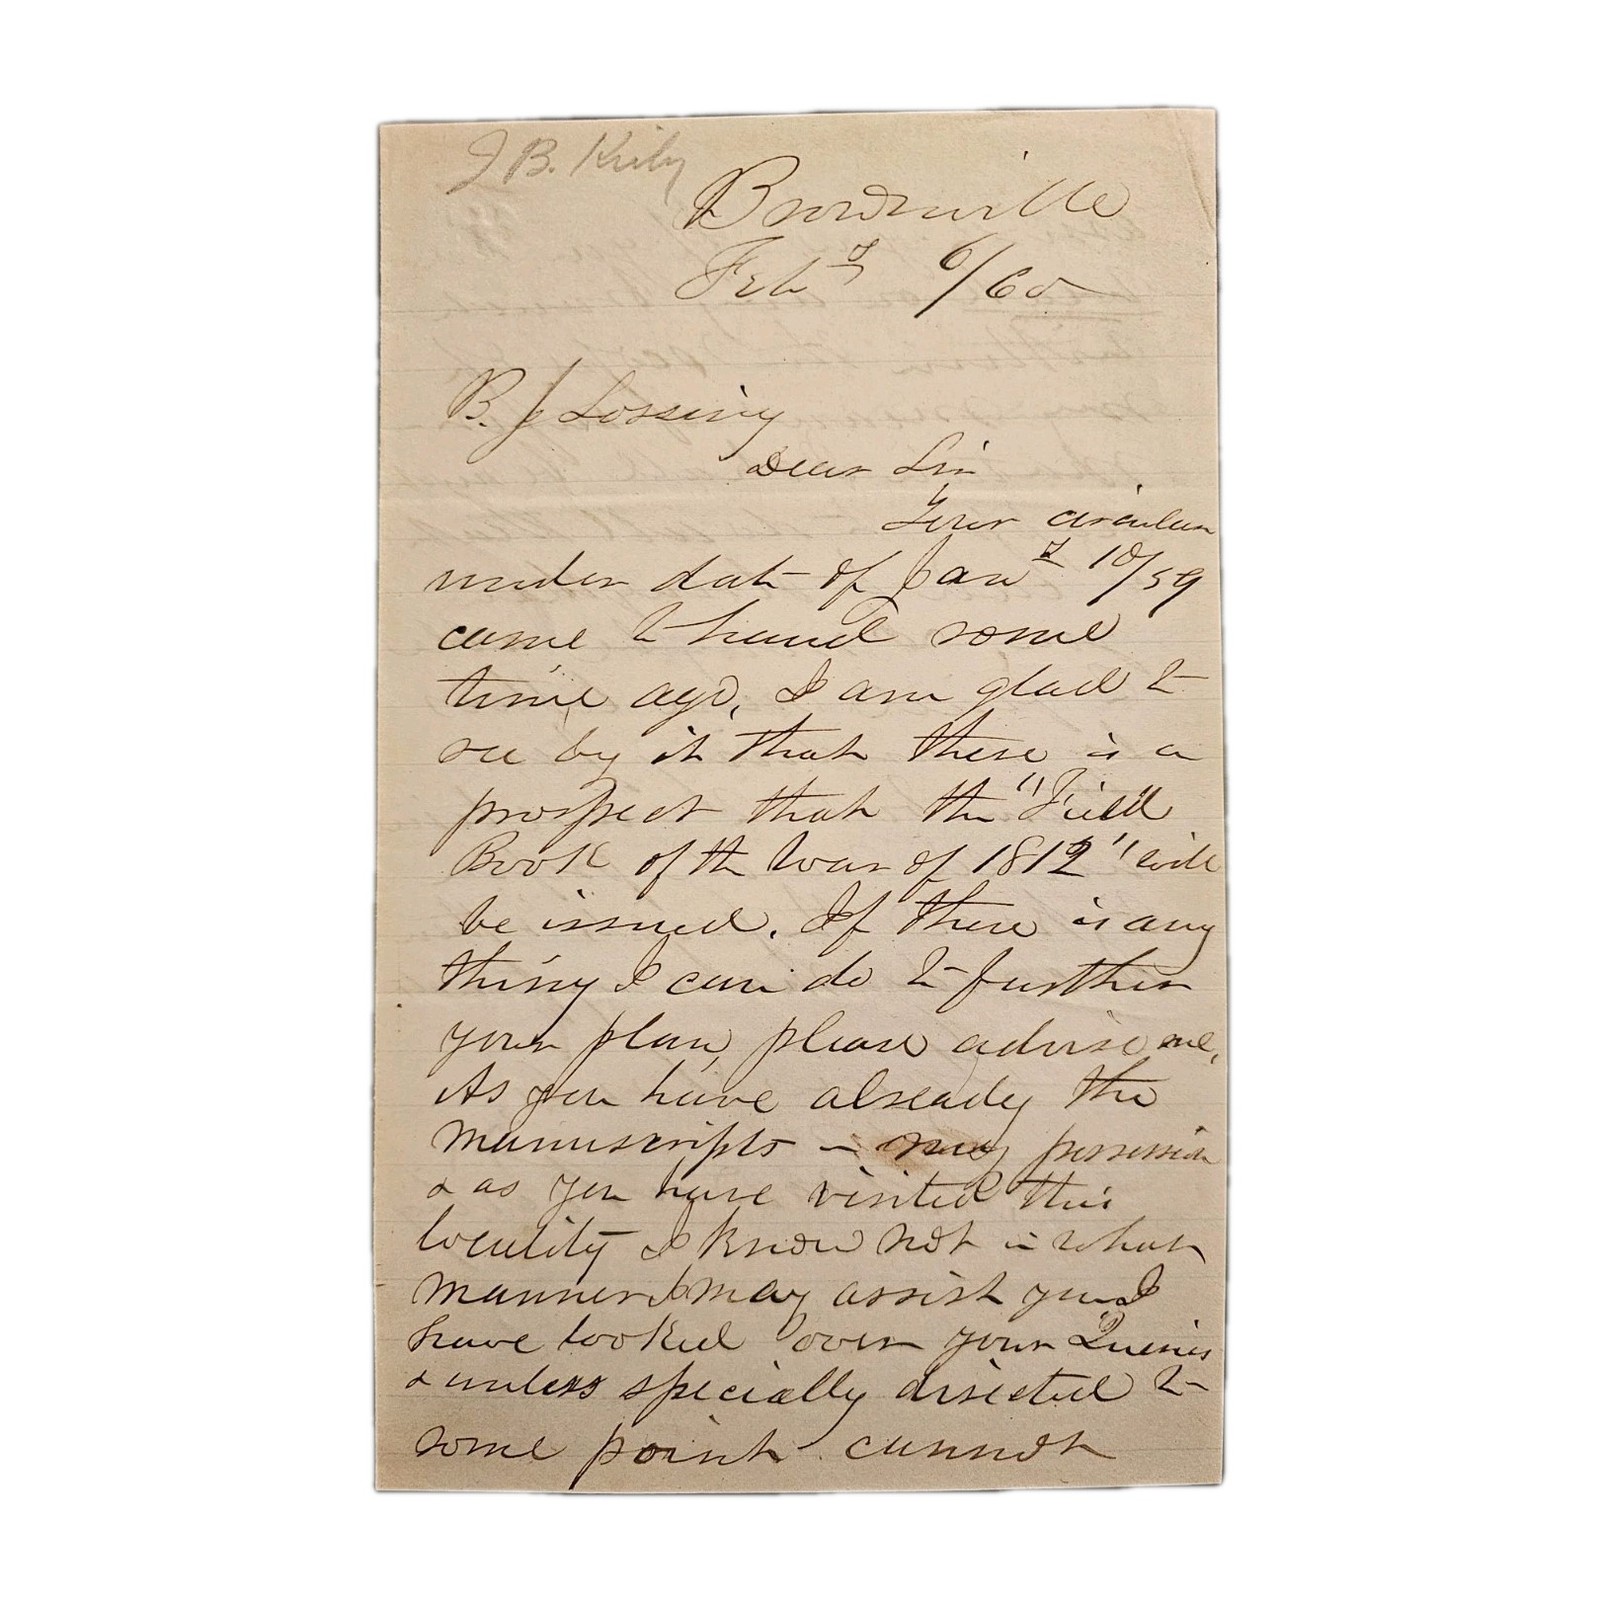 J B. Kirby
Brownville
Feby 6/60
B. J Lossing
Dear Sir
Your circular
under date of Jany 10/59
came to hand some
time ago, I am glad to
see by it that there is a
prospect that the "Field
Book of the War of 1812" will
be issued. If there is any
thing I can do to further
your plan, please advise me,
As you have already the
manuscripts in my possession
& as you have visited this
locality I know not in what
manner I may assist you I
have looked over your Queries
& unless specially directed to
some point cannot